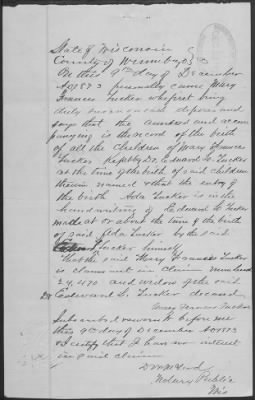 State of Wisconsin
County of
Be this 9th day of December
AD 1873 personally came Mary
Frances Tucker who first being
duly sworn on oath deposes and
says that the annexed and accom
panying is the record of the birth
of all the children of Mary Frances
Tucker kept by Dr. Edward L. Tucker
at the time of the birth of said children
therein named & that the entry of
the birth Ada Tucker is in the
hand writing of Edward L. Tucker
made at or about the time of the birth
of said Ada Tucker by the said
Tucker himself
That the said Mary Frances Tucker
is claimant in claim number
and widow of the said
Dr Edward L. Tucker deceased
Mary Frances Tucker
Subscribed & sworn to before me
this 9th day of December AD 1873
& I certify that I have no interest
in said claim
Notary Public
Wis